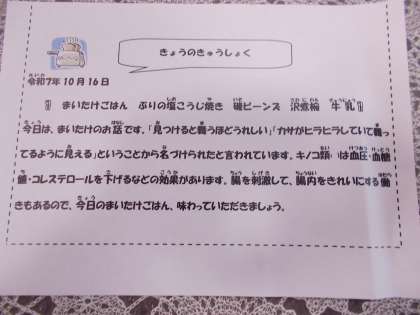 きょうのきゅうしょく
令和7年10月16日
まいたけごはん ぶりの塩こうじ焼き 磯ビーンズ 沢煮椀 牛乳
今日は、まいたけのお話です。「見つけると舞うほどうれしい」「カサがヒラヒラしていて舞っ
てるように見える」ということから名づけられたと言われています。キノコ類は血圧・血糖
値・コレステロールを下げるなどの効果があります。腸を刺激して、腸内をきれいにする働
きもあるので、今日のまいたけごはん、味わっていただきましょう。